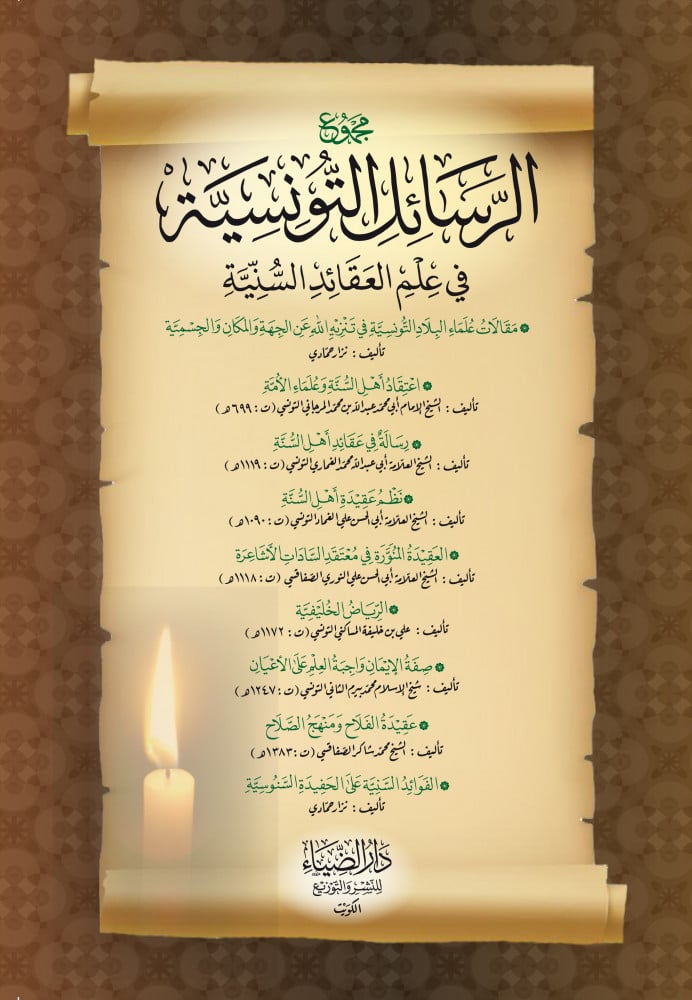 مجموع
الرَّسَائِلِ التُّونِسِيَّة
فِي عِلْمِ العَقَائِدِ السُّنِّيَّةِ
مَقَالَاتُ عُلَمَاءِ البِلَادِ التُّونِسِيَّةِ فِي تَنْزِيهِ اللهِ عَنِ الجِهَةِ وَالمَكَانِ وَالجِسْمِيَّةِ
تأليف : نزار حمّادي
اعْتِقَادُ أَهْلِ السُّنَّةِ وَعُلَمَاءِ الأُمَّةِ
تأليف : الشيخ الإمام أبي محمد عبدالله بن محمد المرجاني التونسي (ت : ٦٩٩هـ)
رِسَالَةٌ فِي عَقَائِدِ أَهْلِ السُّنَّةِ
تأليف : الشيخ العلامة أبي عبدالله محمد الغماري التونسي (ت : ١١١٩هـ)
نَظْمُ عَقِيدَةِ أَهْلِ السُّنَّةِ
تأليف : الشيخ العلامة أبي الحسن علي الغماد التونسي (ت : ١٠٩٠هـ)
العَقِيدَةُ المُنَوَّرَةِ فِي مُعْتَقَدِ السَّادَاتِ الأَشَاعِرَةِ
تأليف : الشيخ العلامة أبي الحسن علي النوري الصفاقسي (ت : ١١١٨هـ)
الرِّيَاضُ الخُلَيْفِيَّة
تأليف : علي بن خليفة المساكني التونسي (ت : ١١٧٢هـ)
صِفَةُ الإِيْمَانِ وَاجِبَةُ العِلْمِ عَلَى الأَعْيَانِ
تأليف : شيخ الإسلام محمد بيرم الثاني التونسي (ت : ١٢٤٧هـ)
عَقِيدَةُ الفَلَاحِ وَمَنْهَجُ الصَّلَاحِ
تأليف : الشيخ محمد شاكر الصفاقسي (ت : ١٣٨٣هـ)
الفَوَائِدُ السَّنِيَّةِ عَلَى الحَفِيدَةِ السَّنُوسِيَّةِ
تأليف : نزار حمّادي
دَارُ الضِّيَاءِ
لِلنَّشِرِ وَالتَّوْزِيْعِ
الكويت